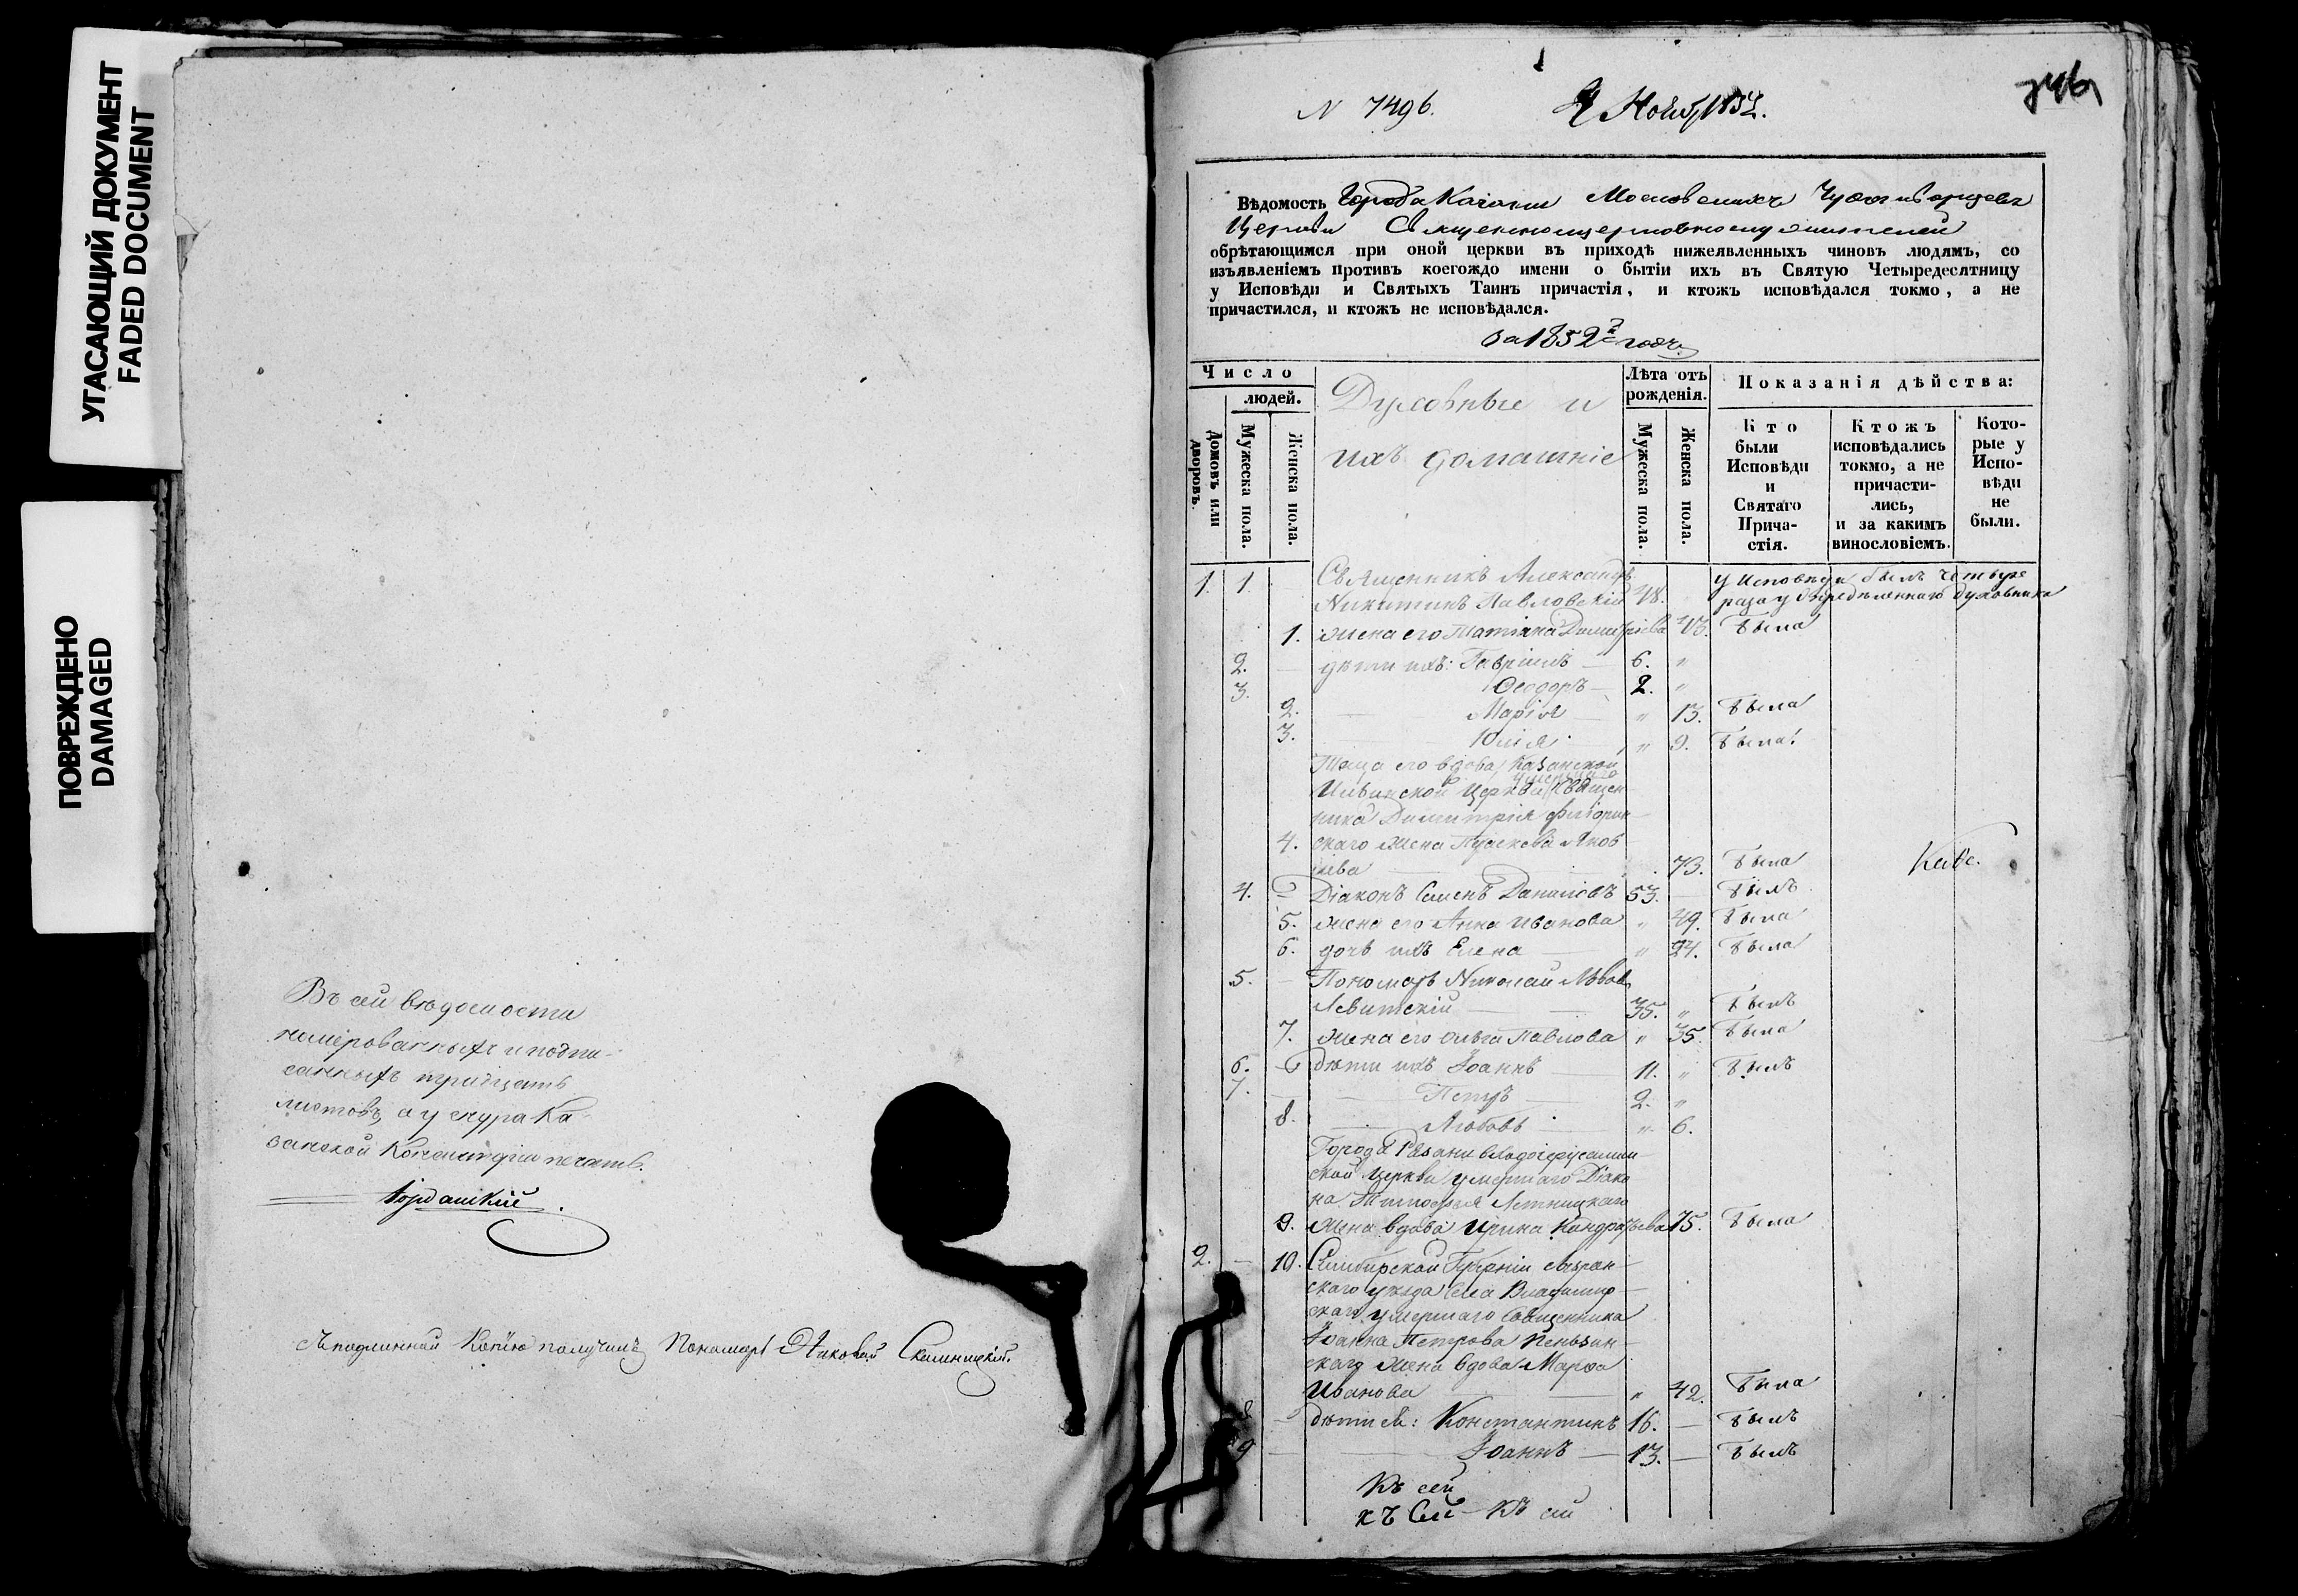 УГАСАЮЩИЙ ДОКУМЕНТ
FADED DOCUMENT
ПОВРЕЖДЕНО
DAMAGED
Въ сей вѣдомости
нумерованныхъ и подпи-
санныхъ тридцать
листовъ, а у снура Ка-
занской Консисторіи печать.
Съ подлинной Копію получилъ Пономарь
N 7496.
4 Нояб, 1852.
Вѣдомость Города Казани Московскихъ Чудотворцевъ
Церкви Священноцерковнослужителей
обрѣтающимся при оной церкви въ приходѣ нижеявленныхъ чиновъ людямъ, со
изъявленіемъ противъ коегождо имени о бытіи ихъ въ Святую Четыредесятницу
у Исповѣди и Святыхъ Таинъ причастія, и ктожъ исповѣдался токмо, а не
причастился, и ктожъ не исповѣдался.
за 1852й годъ.
Число
людей.
Домовъ или дворовъ.
Мужеска пола.
Женска пола.
Духовные и
ихъ домашніе
Лѣта отъ рожденія.
Мужеска пола.
Женска пола.
Показанія дѣйства:
Кто были Исповѣди и Святаго Прича-стія.
Ктожъ исповѣдались токмо, а не причасти-лись, и за какимъ винословіемъ.
Кото-рые у Испо-вѣди не были.
1. 1. Священникъ Александръ У Исповѣди былъ четыре
Никитинъ Павловскій 48. раза у опредѣленнаго духовника
1. жена его Татіана Димитріева 43. Была
2. — дѣти ихъ: Гавріилъ — 6. "
3. Ѳеодоръ — 2. "
2. Марія — " 13. Была
3. Юлія " 9. Была.
Теща его вдова, Казанской
умершаго
Церкви Священ
ника Димитрія
4. скаго жена Яков
лева 73. Была
4. — Діаконъ Семенъ Даниловъ 53. — Былъ
5. жена его Анна Иванова " 49. Была
6. дочь ихъ Елена — " 24. Была
5. — Пономарь Николай Львовъ
Левитскій — 35. " Былъ
7. жена его Ольга Павлова " 35. Была
6. дѣти ихъ Іоаннъ — 11. " Былъ
7. — Петръ — 2. "
8. — Любовь — " 6.
Города
ской Церкви умершаго Діако
на Тимофея
9. жена вдова Ирина Кондратьева 75. Была
2. — 10. Симбирской Губерніи Сызран-
скаго уѣзда Села Владимир-
скаго умершаго Священника
Іоанна Петрова Пензин-
скаго жена вдова Марфа
Иванова — " 42. Была
8 дѣти ея: Константинъ 16. — Былъ
9 — Іоаннъ — 13. — Былъ
Къ сей
къ Сей — Къ сей